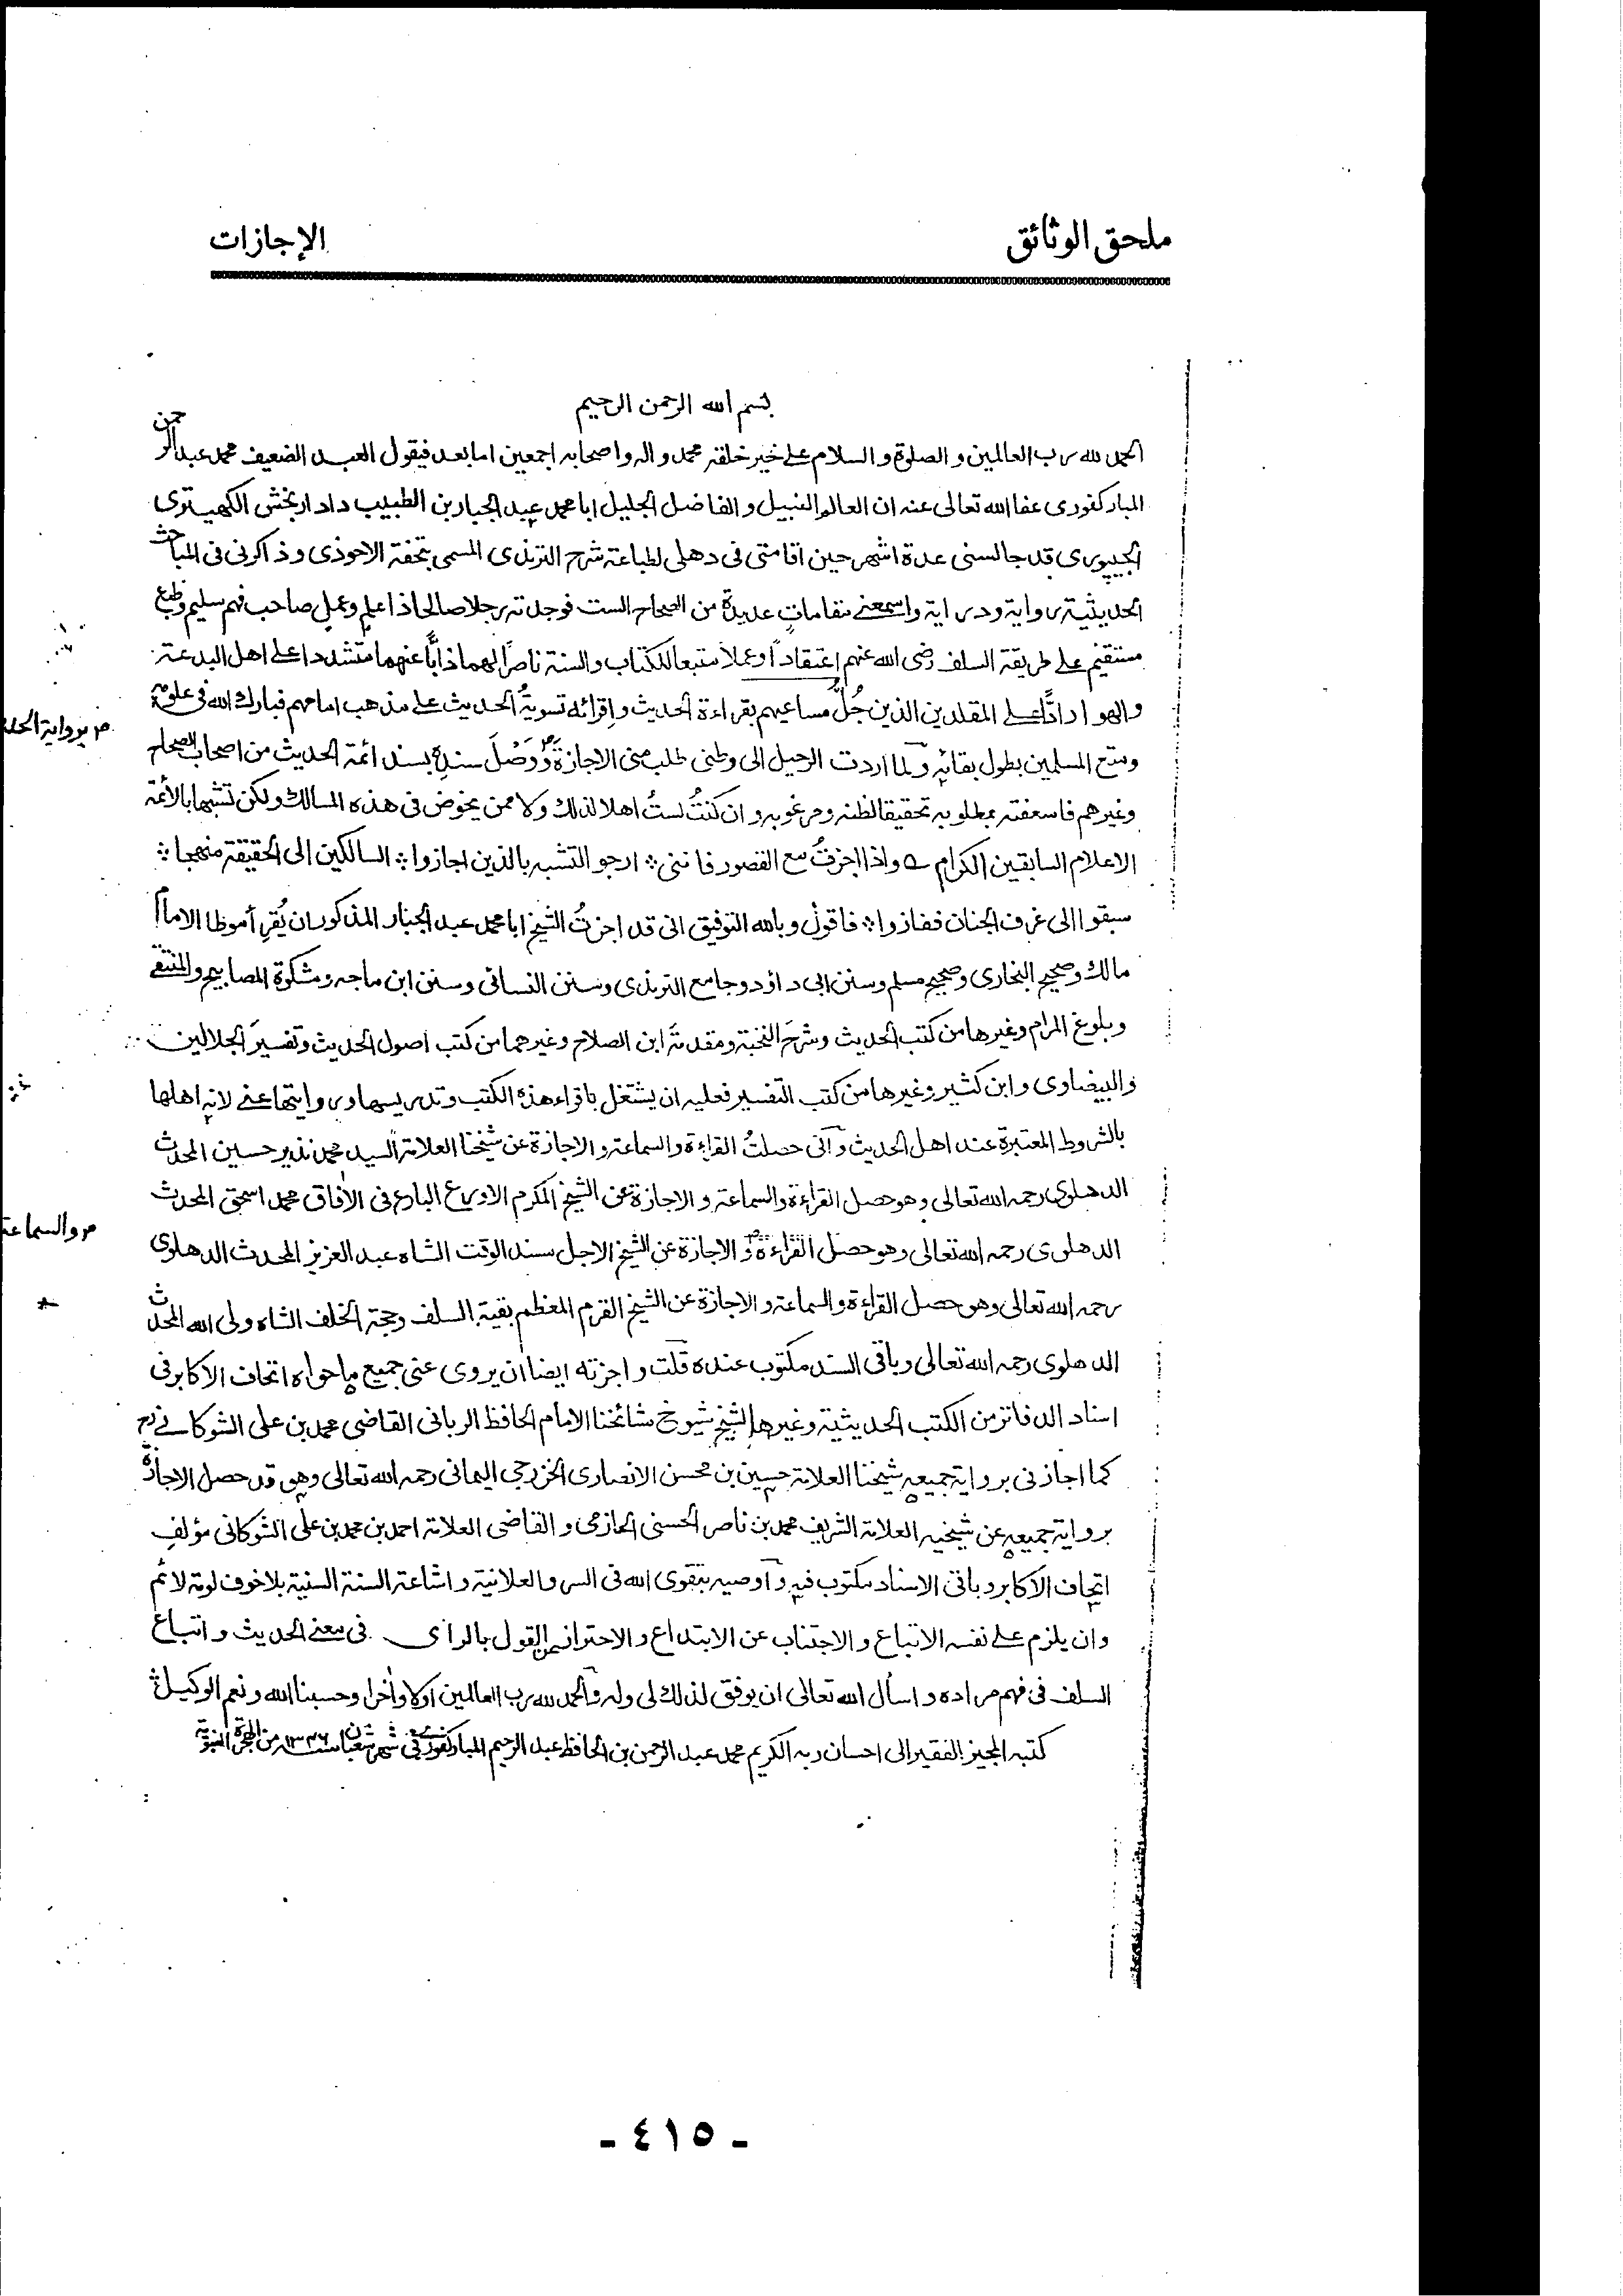 ملحق الوثائق
الإجازات
بسم الله الرحمن الرحيم
الحمد لله رب العالمين و الصلوة و السلام على خير خلقه محمد و اله و اصحابه اجمعين اما بعد فيقول العبد الضعيف محمد عبد الرحمن
المباركفوري عفا الله تعالى عنه ان العالم النبيل و الفاضل الجليل ابا محمد عبد الجبار بن الطبيب دادار بخش الكهيتروى
الجيپورى قد جالسنى عدة اشهر حين اقامتى فى دهلى لطباعة شرح الترمذى المسمى بتحفة الاحوذى و ذاكرنى فى المباحث
الحديثية رواية و دراية و اسمعنى مقامات عديدة من الصحاح الست فوجدته رجلا صالحا ذا علم و عمل صاحب فهم سليم و طبع
مستقيم على طريقة السلف رضى الله عنهم اعتقاداً و عملا متبعا للكتاب و السنة ناصرا لهما ذابًّا عنهما متشددا على اهل البدعة
و الهوا رادًّا على المقلدين الذين جُلُّ مساعيهم بقراءة الحديث و اقرائه تسويةُ الحديث على مذهب امامهم فبارك الله فى علومه
و متع المسلمين بطول بقائه و لما اردت الرحيل الى وطنى طلب منى الاجازة و وَصْلَ سنده بسند ائمة الحديث من اصحاب الصحاح
م برواية الحد
و غيرهم فاسعفته بمطلوبه تحقيقا لظنه و مرغوبه و ان كنتُ لستُ اهلا لذلك و لا ممن يخوض فى هذه المسالك و لكن تشبها بالأئمة
الاعلام السابقين الكرام ے و اذا اجزتُ مع القصور فاننى ؞ ارجو التشبه بالذين اجازوا ؞ السالكين الى الحقيقة منهجا ؞
سبقوا الى غرف الجنان ففازوا ؞ فاقول و بالله التوفيق انى قد اجزتُ الشيخ ابا محمد عبد الجبار المذكور ان يُقرِأ موطا الامام
مالك و صحيح البخارى و صحيح مسلم و سنن ابى داؤد و جامع الترمذى و سنن النسائى و سنن ابن ماجه و مشكوة المصابيح و المنتقى
و بلوغ المرام و غيرها من كتب الحديث و شرحَ النخبة و مقدمةَ ابن الصلاح و غيرهما من كتب اصول الحديث و تفسيرَ الجلالين
و البيضاوى و ابن كثير و غيرها من كتب التفسير فعليه ان يشتغل باقراء هذه الكتب و تدريسها و روايتها عنى لانه اهلها
بالشروط المعتبرة عند اهل الحديث و انى حصلتُ القراءة و السماعة و الاجازة عن شيخنا العلامة السيد محمد نذير حسين المحدث
الدهلوى رحمه الله تعالى و هو حصل القراءة و السماعة و الاجازة عن الشيخ المكرم الاورع البارع فى الآفاق محمد اسحق المحدث
الدهلوى رحمه الله تعالى و هو حصل القراءة و الاجازة عن الشيخ الاجل مسند الوقت الشاه عبد العزيز المحدث الدهلوى
م و السماعة
رحمه الله تعالى و هو حصل القراءة و السماعة و الاجازة عن الشيخ القرم المعظم بقية السلف و حجة الخلف الشاه ولى الله المحدث
الدهلوى رحمه الله تعالى و باقى السند مكتوب عنده قلت و اجزته ايضا ان يروى عنى جميع ما حواه اتحاف الاكابر فى
اسناد الدفاتر من الكتب الحديثية و غيرها لشيخ شيوخ مشائخنا الامام الحافظ الربانى القاضى محمد بن على الشوكانى رح
كما اجازنى برواية جميعه شيخنا العلامة حسين بن محسن الانصارى الخزرجى اليمانى رحمه الله تعالى و هو قد حصل الاجازة
برواية جميعه عن شيخيه العلامة الشريف محمد بن ناصر الحسنى الحازمى و القاضى العلامة احمد بن محمد بن على الشوكانى مؤلف
اتحاف الاكابر و باقى الاسناد مكتوب فيه و اوصيه بتقوى الله فى السر و العلانية و اشاعة السنة السنية بلا خوف لومة لائم
و ان يلزم على نفسه الاتباع و الاجتناب عن الابتداع و الاحتراز عن القول بالراى فى معنى الحديث و اتباع
السلف فى فهم مراده و اسأل الله تعالى ان يوفق لذلك لى و له و الحمد لله رب العالمين اولا و اٰخرا و حسبنا الله و نعم الوكيل
كتبه المجيز الفقير الى احسان ربه الكريم محمد عبد الرحمن بن الحافظ عبد الرحيم المباركفورى فى شهر شعبان سنة ١٣٤٦ من الهجرة النبوية
- ٤١٥ -